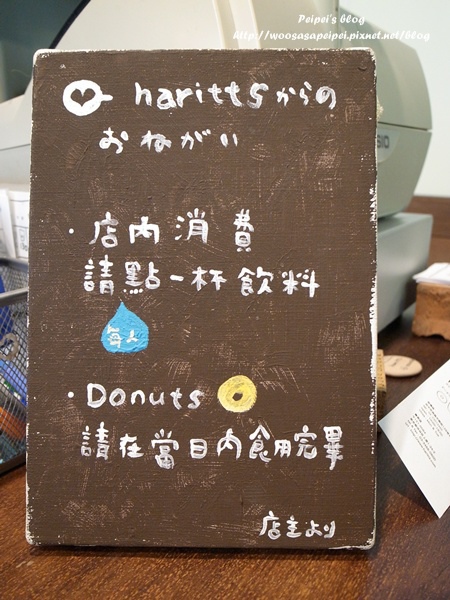 Peipei's blog
http://woosasapeipei.pixnet.net/blog
harittsからの
おねがい
・店內消費
請點一杯飲料
每人
・Donuts
請在當日內食用完畢
店主より